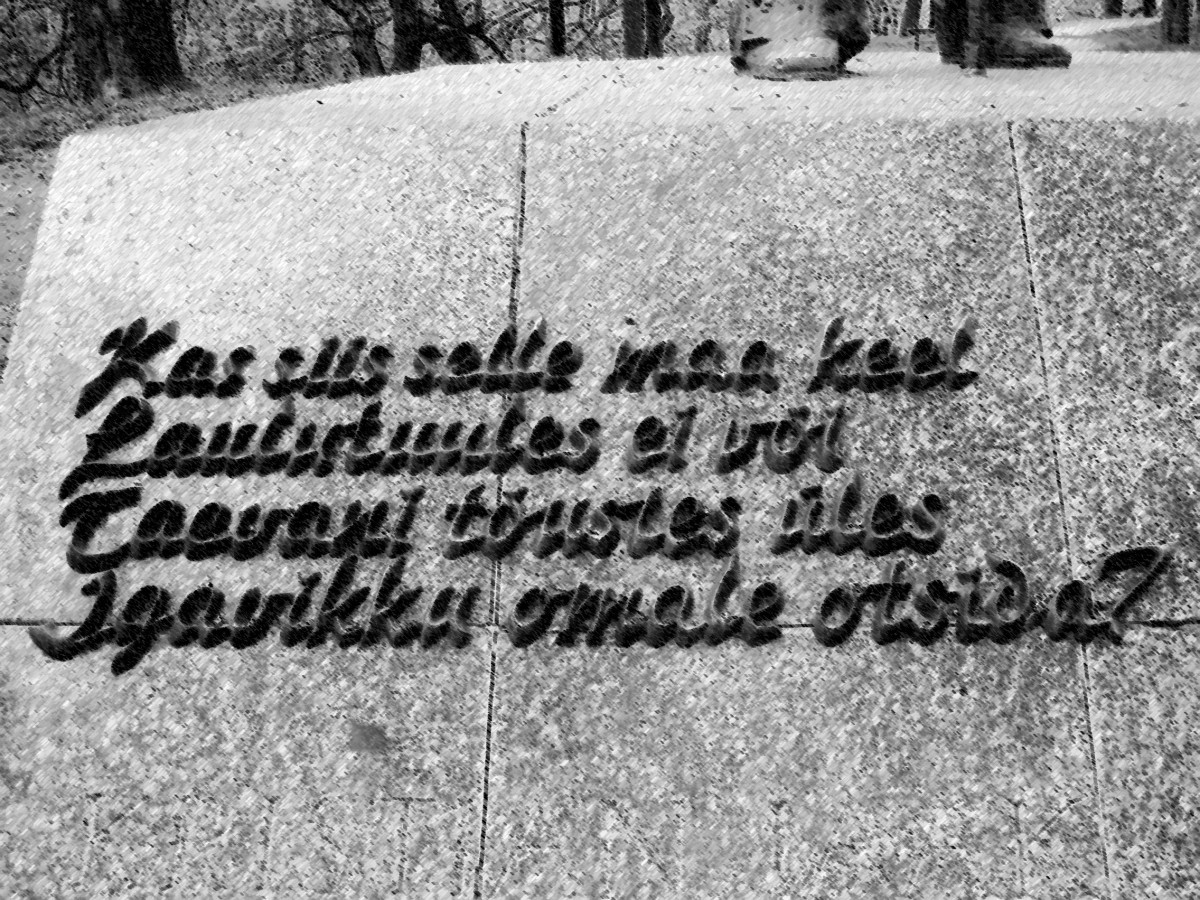 Kas siis selle maa keel
Laulutuules ei või
Taevani tõustes üles
Igavikku omale otsida?